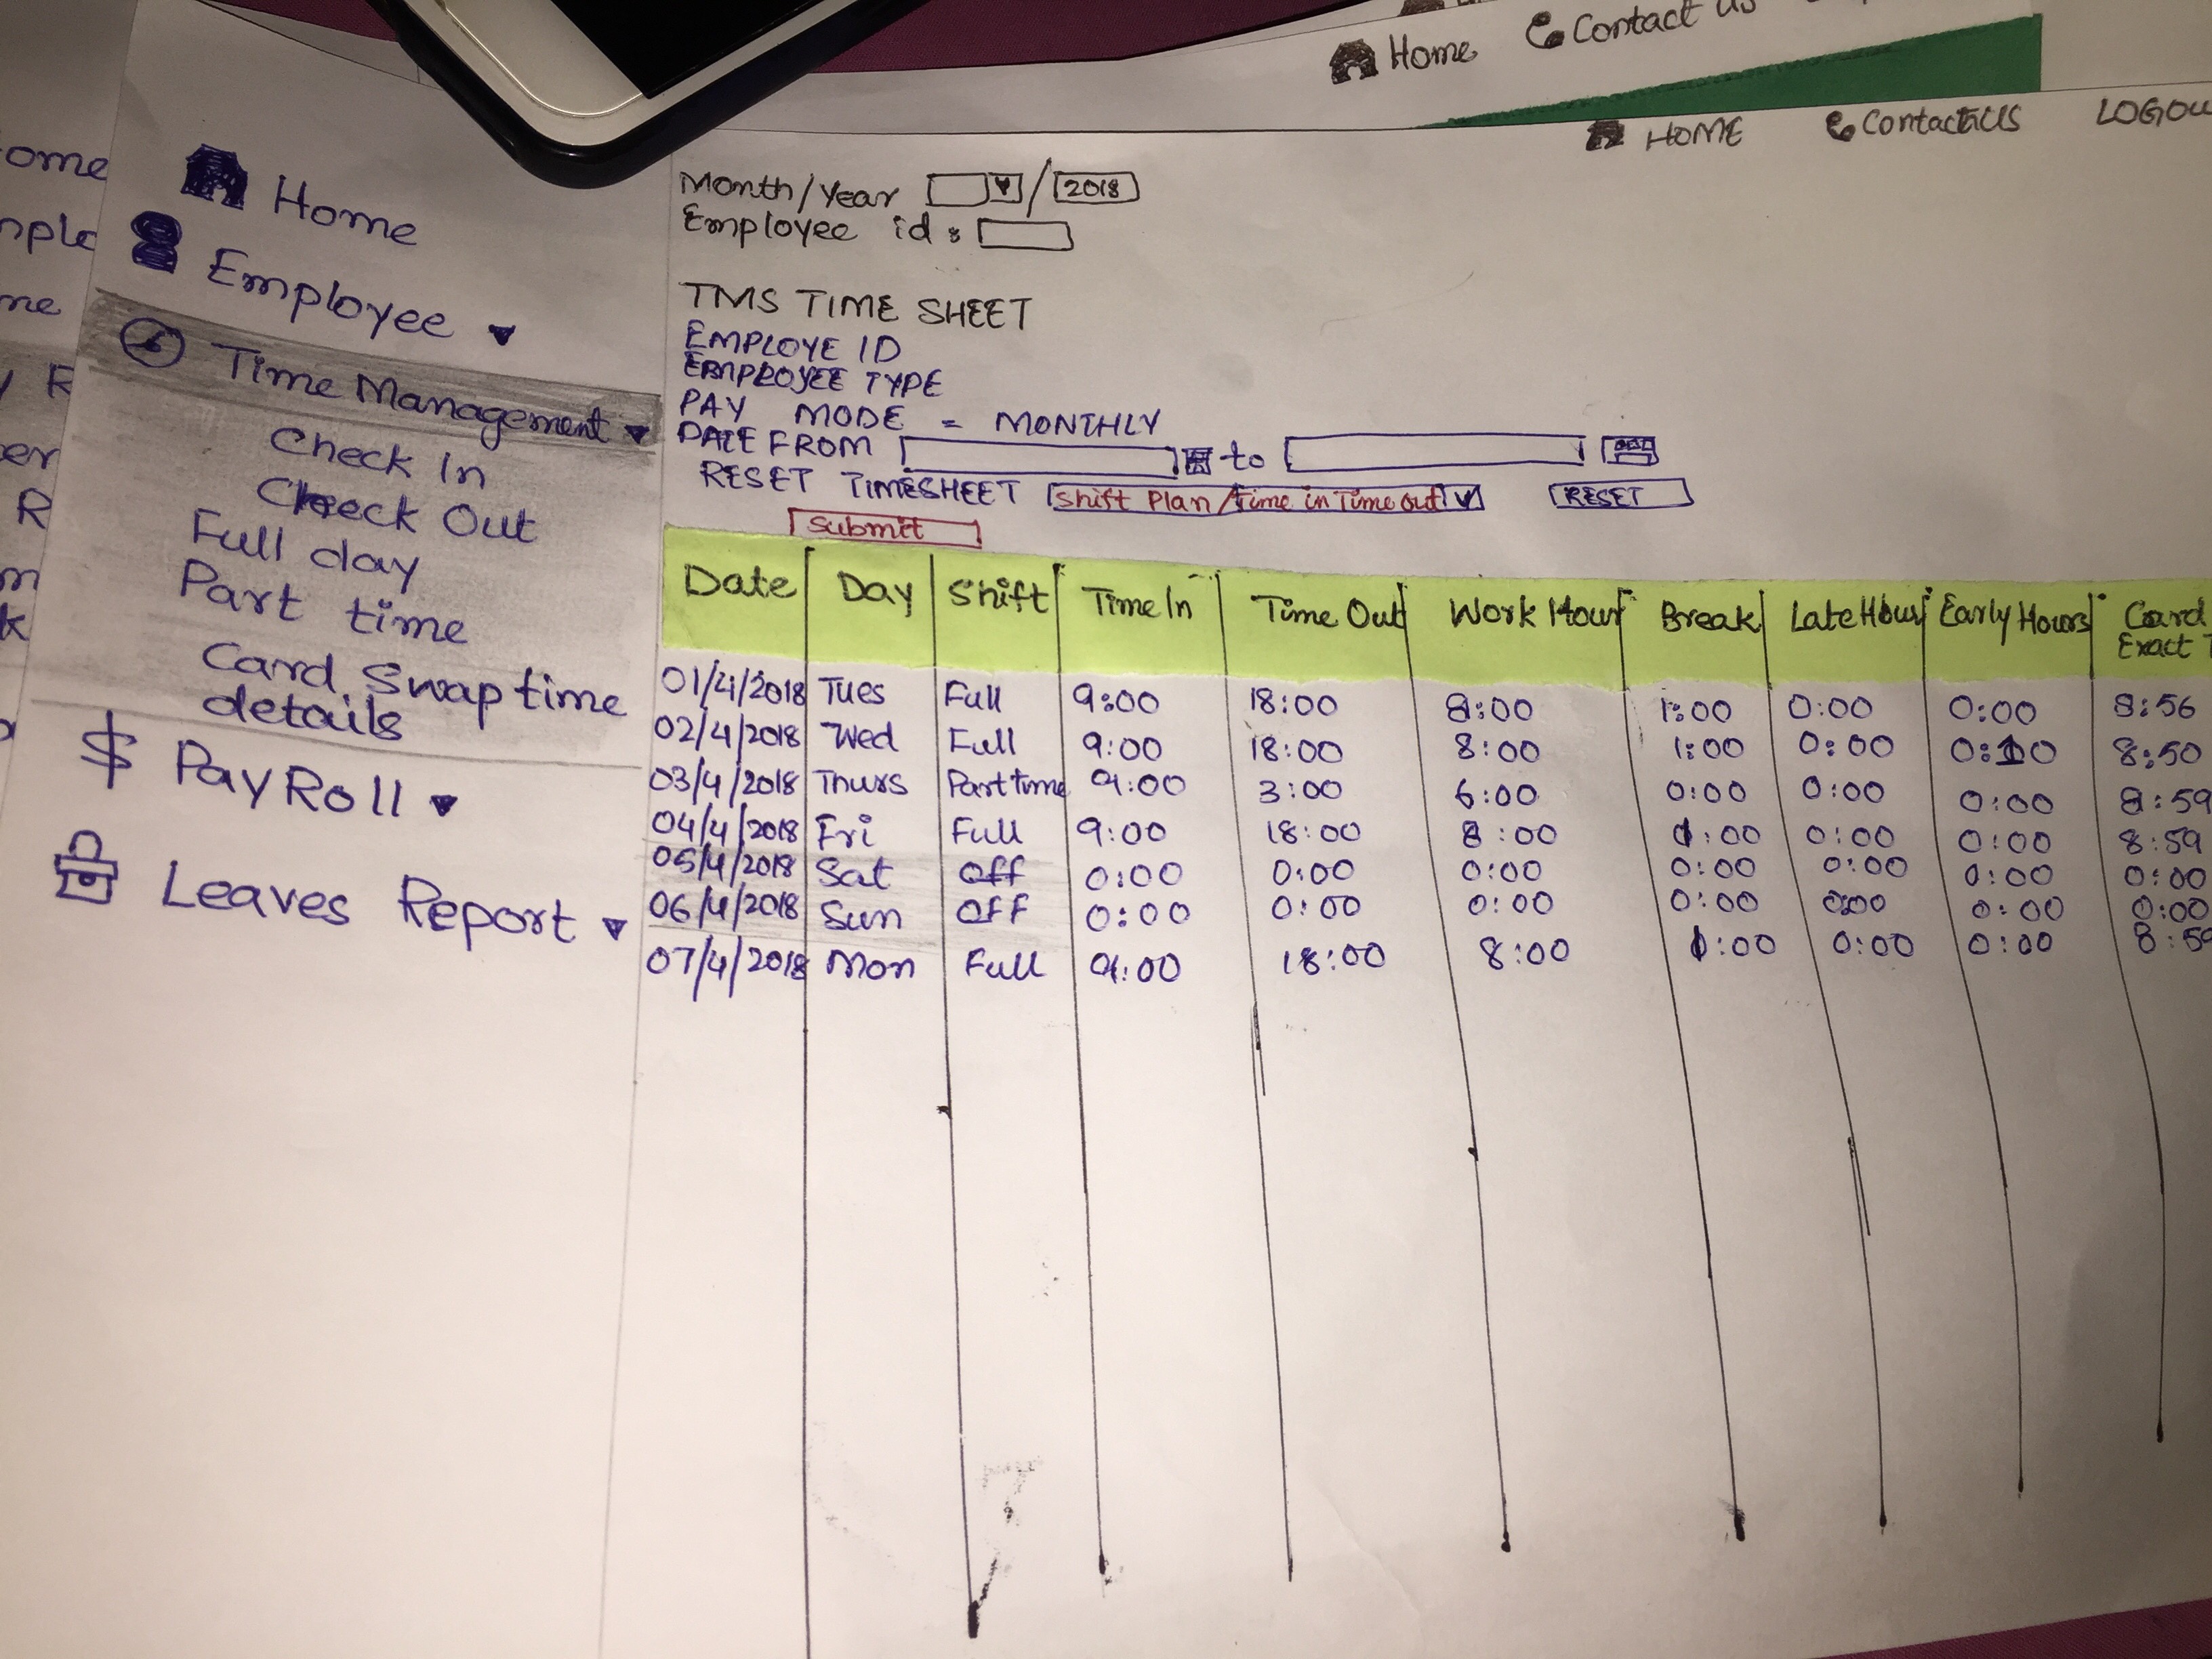 ome
mple
me
y R
er
R
m
k
Home
Contact us
HOME
Contact us
LOGOU
Home
Employee
Time Management
Check In
Check Out
Full day
Part time
Card Swap time
details
$ PayRoll
Leaves Report
Month/Year / 2018
Employee id :
TMS TIME SHEET
EMPLOYE ID
EMPLOYEE TYPE
PAY MODE = MONTHLY
DATE FROM to
RESET TIMESHEET Shift Plan/Time in Time out RESET
Submit
Date Day Shift Time In Time Out Work Hour Break Late Hour Early Hours Card
Exact T
01/4/2018 Tues Full 9:00 18:00 8:00 1:00 0:00 0:00 8:56
02/4/2018 Wed Full 9:00 18:00 8:00 1:00 0:00 0:10 8:50
03/4/2018 Thurs Part time 9:00 3:00 6:00 0:00 0:00 0:00 8:59
04/4/2018 Fri Full 9:00 18:00 8:00 1:00 0:00 0:00 8:59
05/4/2018 Sat Off 0:00 0:00 0:00 0:00 0:00 0:00 0:00
06/4/2018 Sun Off 0:00 0:00 0:00 0:00 0:00 0:00 0:00
07/4/2018 Mon Full 9:00 18:00 8:00 1:00 0:00 0:00 8:59